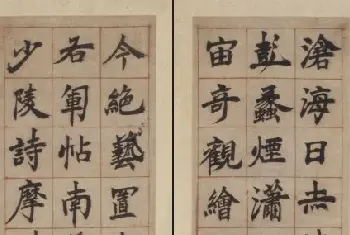 滄海日赤
彭蠡煙瀟
宙奇觀繪
今絕藝置
右軍帖南
少陵詩摩